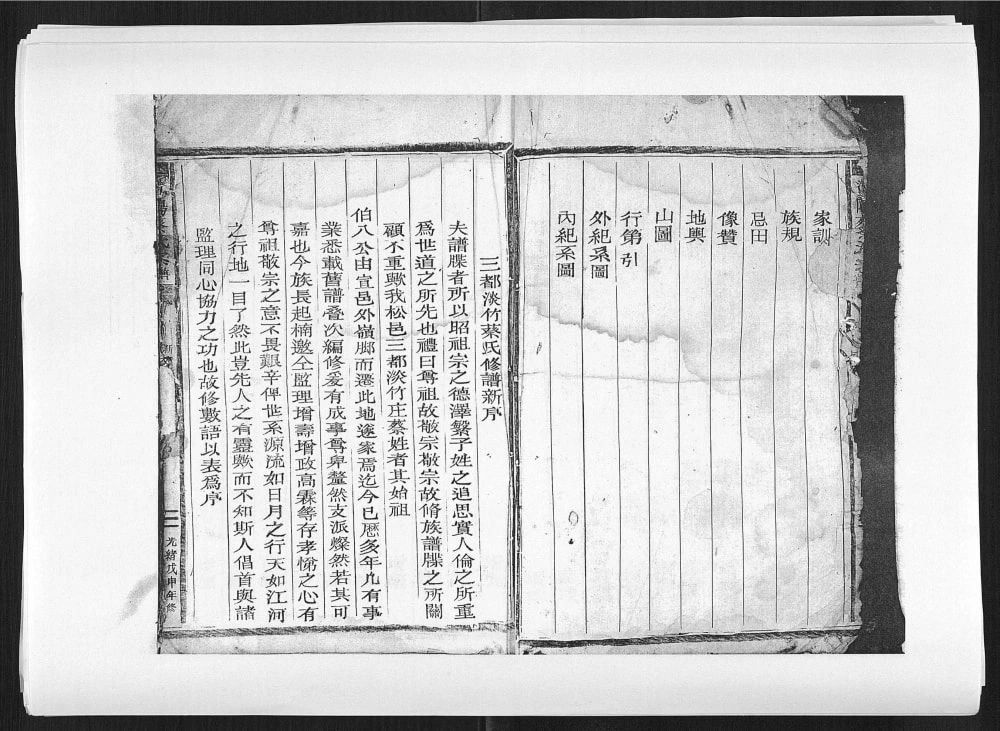 家訓
族規
忌田
像贊
地輿
山圖
行第引
外紀系圖
內紀系圖
三都淡竹蔡氏修譜新序
夫譜牒者所以昭祖宗之德澤繫子姓之追思實人倫之所重
爲世道之所先也禮曰尊祖故敬宗敬宗故脩族譜牒之所關
顧不重歟我松邑三都淡竹庄蔡姓者其始祖
伯八公由宣邑外嶺脚而遷此地遂家焉迄今已歷多年凡有事
業悉載舊譜叠次編修爰有成事尊卑釐然支派燦然若其可
嘉也今族長起楠邀仝監理增壽增政高霖等存孝悌之心有
尊祖敬宗之意不畏艱辛俾世系源流如日月之行天如江河
之行地一目了然此豈先人之有靈歟而不知斯人倡首與諸
監理同心協力之功也故修數語以表爲序
新序
二
光緒戊申年修